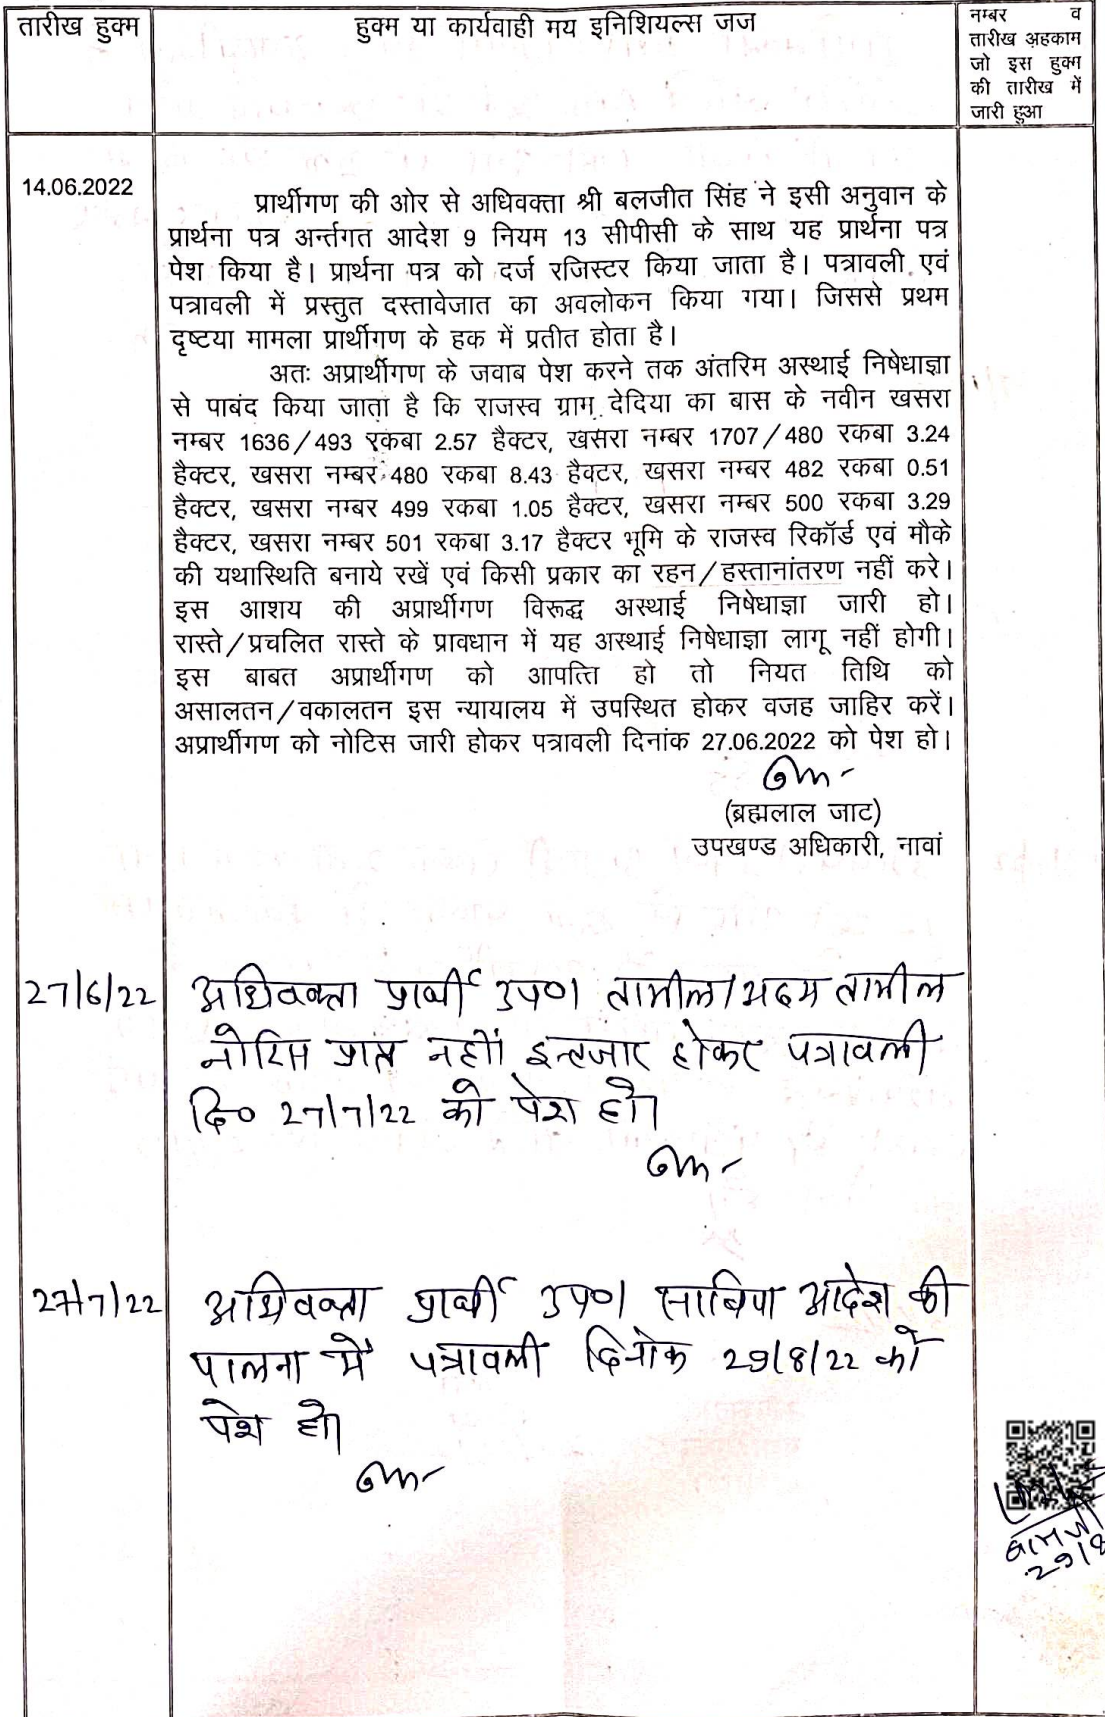 तारीख हुक्म
हुक्म या कार्यवाही मय इनिशियल्स जज
नम्बर व
तारीख अहकाम
जो इस हुक्म
की तारीख में
जारी हुआ
14.06.2022
प्रार्थीगण की ओर से अधिवक्ता श्री बलजीत सिंह ने इसी अनुवान के
प्रार्थना पत्र अर्न्तगत आदेश 9 नियम 13 सीपीसी के साथ यह प्रार्थना पत्र
पेश किया है। प्रार्थना पत्र को दर्ज रजिस्टर किया जाता है। पत्रावली एवं
पत्रावली में प्रस्तुत दस्तावेजात का अवलोकन किया गया। जिससे प्रथम
दृष्टया मामला प्रार्थीगण के हक में प्रतीत होता है।
अतः अप्रार्थीगण के जवाब पेश करने तक अंतरिम अस्थाई निषेधाज्ञा
से पाबंद किया जाता है कि राजस्व ग्राम देदिया का बास के नवीन खसरा
नम्बर 1636/493 रकबा 2.57 हैक्टर, खसरा नम्बर 1707/480 रकबा 3.24
हैक्टर, खसरा नम्बर 480 रकबा 8.43 हैक्टर, खसरा नम्बर 482 रकबा 0.51
हैक्टर, खसरा नम्बर 499 रकबा 1.05 हैक्टर, खसरा नम्बर 500 रकबा 3.29
हैक्टर, खसरा नम्बर 501 रकबा 3.17 हैक्टर भूमि के राजस्व रिकॉर्ड एवं मौके
की यथास्थिति बनाये रखें एवं किसी प्रकार का रहन/हस्तानांतरण नहीं करे।
इस आशय की अप्रार्थीगण विरूद्ध अस्थाई निषेधाज्ञा जारी हो।
रास्ते/प्रचलित रास्ते के प्रावधान में यह अस्थाई निषेधाज्ञा लागू नहीं होगी।
इस बाबत अप्रार्थीगण को आपत्ति हो तो नियत तिथि को
असालतन/वकालतन इस न्यायालय में उपस्थित होकर वजह जाहिर करें।
अप्रार्थीगण को नोटिस जारी होकर पत्रावली दिनांक 27.06.2022 को पेश हो।
(ब्रह्मलाल जाट)
उपखण्ड अधिकारी, नावां
27/6/22
अधिवक्ता प्रार्थी उप0। तामील/अदम तामील
नोटिस प्राप्त नहीं। इन्तजार होकर पत्रावली
दि० 27/7/22 को पेश हो।
27/7/22
अधिवक्ता प्रार्थी उप0। साबिया आदेश की
पालना में पत्रावली दिनांक 29/8/22 को
पेश हो।